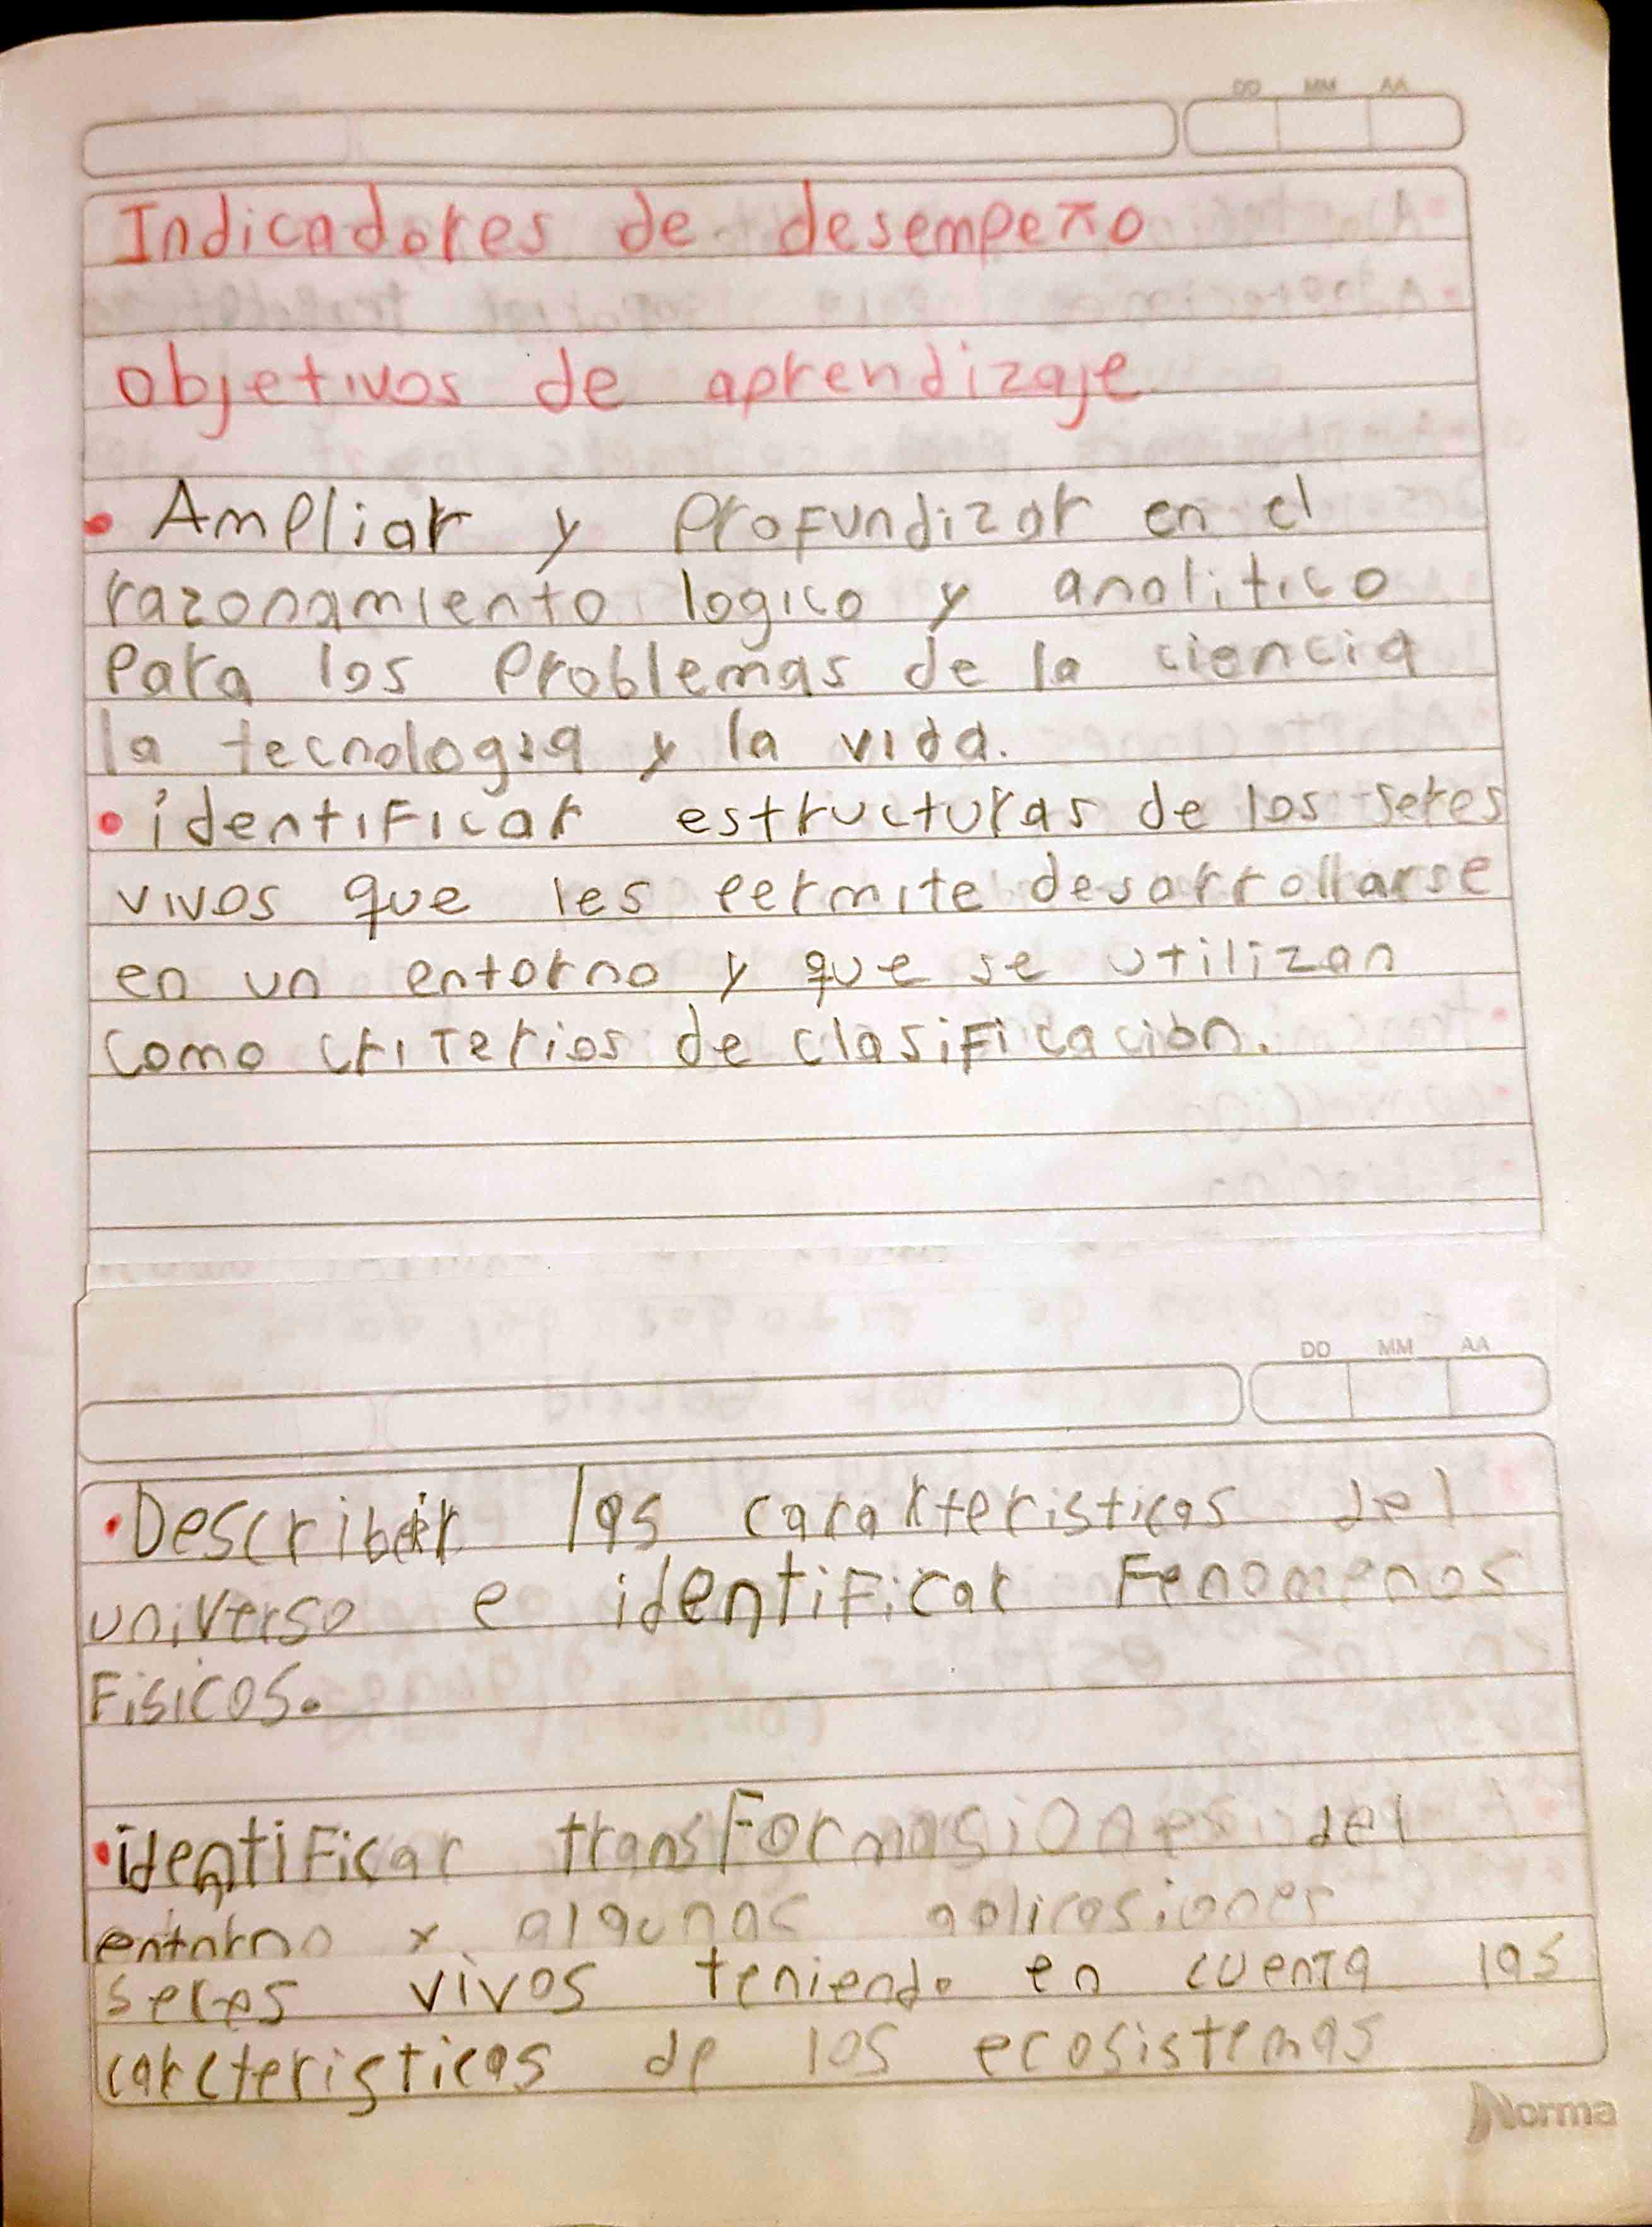 DD MM AA
Indicadores de desempeño
objetivos de aprendizaje
• Ampliar y profundizar en el
razonamiento logico y analitico
Para los Problemas de la ciencia
la tecnologia y la vida.
• identificar estructuras de los seres
vivos que les permite desarrollarse
en un entorno y que se utilizan
como criterios de clasificación.
DD MM AA
• Describir las carakteristicas del
universo e identificar Fenomenos
Fisicos.
• identificar transformasiones del
entorno y algunas aplicasiones
seres vivos teniendo en cuenta las
carcteristicas de los ecosistemas
Norma